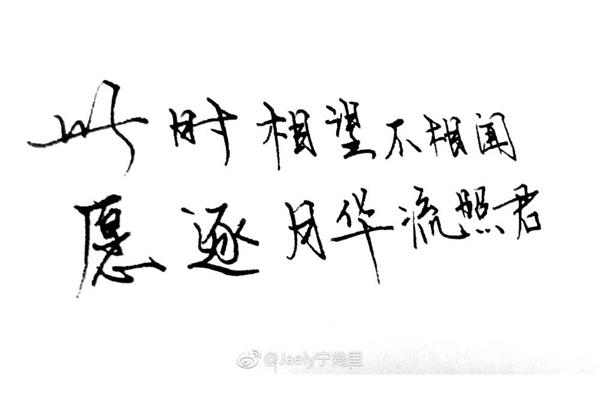 此时相望不相闻
愿逐月华流照君
@Jaely宁幾里